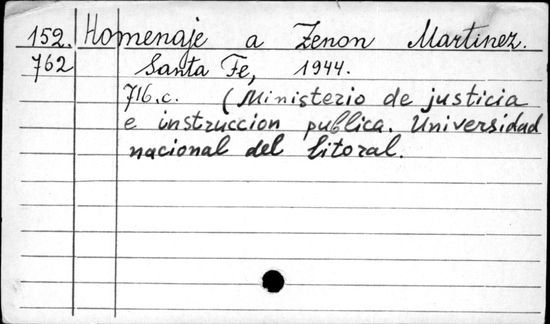 152. Homenaje a Zenon Martinez.
762 Santa Fe, 1944.
716.c. (Ministerio de justicia
e instruccion publica. Universidad
nacional del litoral.